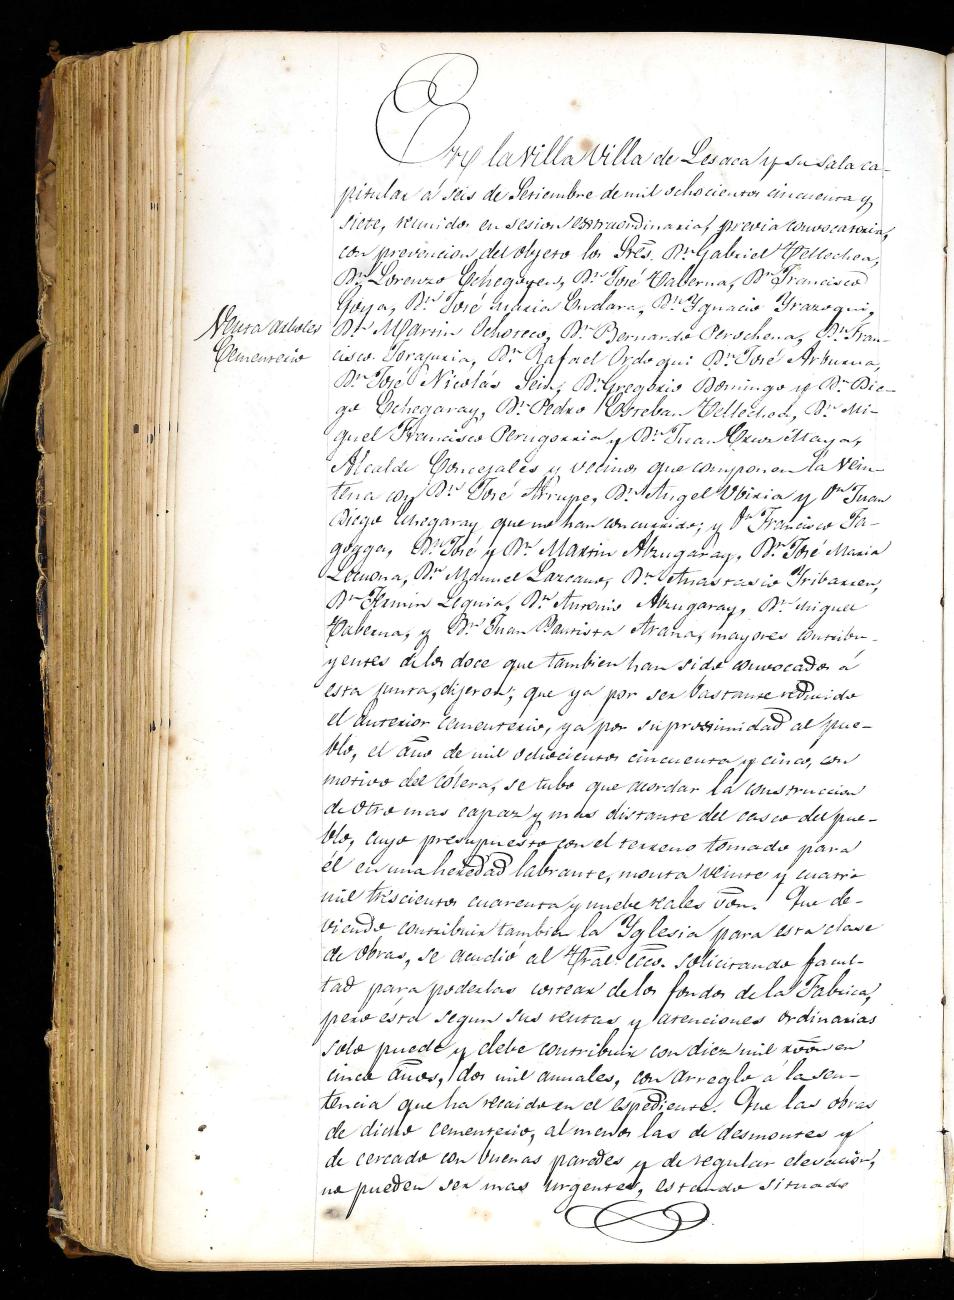 Venta arboles
Cementerio
En la villa Villa de Lesaca y su sala ca-
pitular á seis de Setiembre de mil ochocientos cincuenta y
siete, reunidos en sesion extraordinaria, previa convocatoria,
con prevencion del objeto los Sres. Dn. Gabriel Tellechea,
Dn. Lorenzo Echegoyen, Dn. José Taberna, Dn. Francisco
Goya, Dn. José Maria Endara, Dn. Ygnacio Yrazoqui,
Dn. Martin Ochoteco, Dn. Bernardo Perochena, Dn. Fran-
cisco Torajuria, Dn. Rafael Ordoqui Dn. José Arburua,
Dn. José Nicolás Sein, Dn. Gregorio Domingo y Dn. Die-
go Echegaray, Dn. Pedro Esteban Tellechea, Dn. Mi-
guel Francisco Perugorria y Dn. Juan Cruz Maya,
Alcalde Concejales y vecinos que componen la vein-
tena con Dn. José Arrupe, Dn. Angel Ubiria y Dn. Juan
Diego Echegaray que no han concurrido; y Dn. Francisco Fa-
goaga, Dn. José y Dn. Martin Alzugaray, Dn. José Maria
Lecuona, Dn. Manuel Lazcano, Dn. Anastasio Yribarren,
Dn. Fermin Leguia, Dn. Antonio Alzugaray, Dn. Miguel
Taberna, y Dn. Juan Bautista Arana, mayores contribu-
yentes de los doce que tambien han sido convocados á
esta junta, dijeron; que ya por ser bastante reducido
el anterior cementerio, ya por su proximidad al pue-
blo, el año de mil ochocientos cincuenta y cinco, con
motivo del cólera, se tubo que acordar la construccion
de otro mas capaz y mas distante del casco del pue-
blo, cuyo presupuesto con el terreno tomado para
él en una heredad labrante, monta veinte y cuatro
mil trescientos cuarenta y nuebe reales von. Que de-
viendo contribuir tambien la Yglesia para esta clase
de obras, se acudió al Tral. ecco. solicitando facul-
tad para poderlas costear de los fondos de la Fabrica,
pero esta segun sus rentas y atenciones ordinarias
solo puede y debe contribuir con diez mil rvon en
cinco años, dos mil anuales, con arreglo á la sen-
tencia que ha recaido en el espediente. Que las obras
de dicho cementerio, al menos las de desmontes y
de cercado con buenas paredes y de regular elevacion,
no pueden ser mas urgentes, estando situado